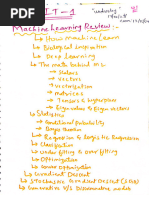 UNIT - 1
Machine Learning Review :-
→ How machine learn
→ Biological Inspiration
→ Deep Learning
→ The math behind ML
→ Scalars
→ vectors
→ matrices
→ Tensors & hyperplanes
→ Eigen values & Eigen vectors
→ Statistics
→ Conditional probability
→ Bayes theorem
→ Regression & Logistic Regression
→ Classification
→ under fitting & over fitting
→ Optimization
→ Convex Optimization
→ Gradient Descent
→ Stochastic Gradient Descent (SGD)
→ Generative v/s Discriminative models